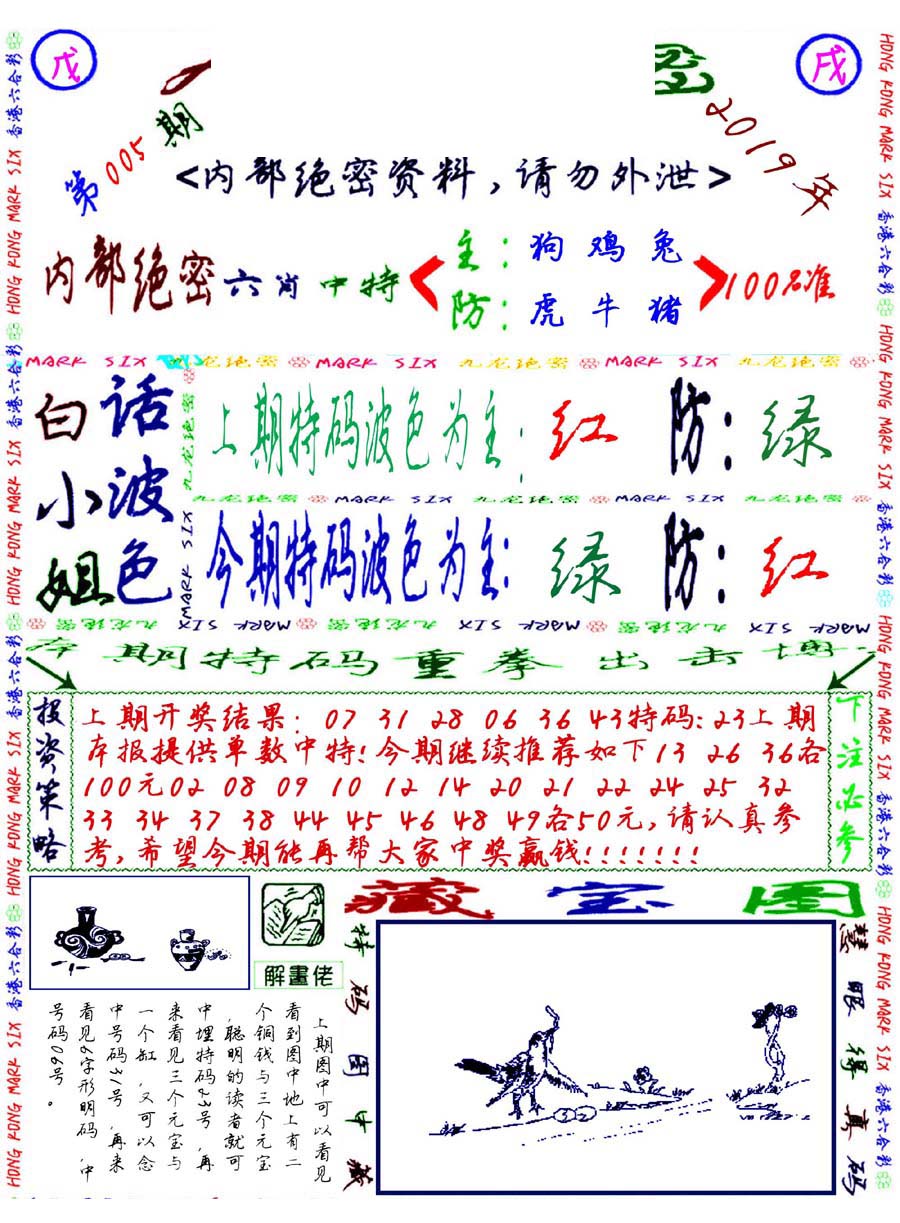 戊
戌
第005期
2019年
<内部绝密资料,请勿外泄>
内部绝密六肖中特
主:狗鸡兔
防:虎牛猪
100%准
MARK SIX 九龙绝密 MARK SIX 九龙绝密 MARK SIX 九龙绝密
白话
小波
姐色
上期特码波色为主:红 防:绿
九龙绝密 MARK SIX 九龙绝密 MARK SIX 九龙绝密
今期特码波色为主:绿 防:红
九龙绝密 MARK SIX 九龙绝密 MARK SIX 九龙绝密 MARK SIX
本期特码重拳出击
投资策略
上期开奖结果: 07 31 28 06 36 43特码:23上期
本报提供单数中特!今期继续推荐如下13 26 36各
100元02 08 09 10 12 14 20 21 22 24 25 32
33 34 37 38 44 45 46 48 49各50元,请认真参
考,希望今期能再帮大家中奖赢钱!!!!!!!
下注必参
藏宝图
解畫佬
上期图中可以看见
看到图中地上有二
个铜钱与三个元宝
,聪明的读者就可
中埋特码23号,再
来看见三个元宝与
一个缸,又可以念
中号码31号,再来
看见6字形明码,中
号码06号。
特码图中藏
慧眼得真码
HONG KONG MARK SIX 香港六合彩
HONG KONG MARK SIX 香港六合彩